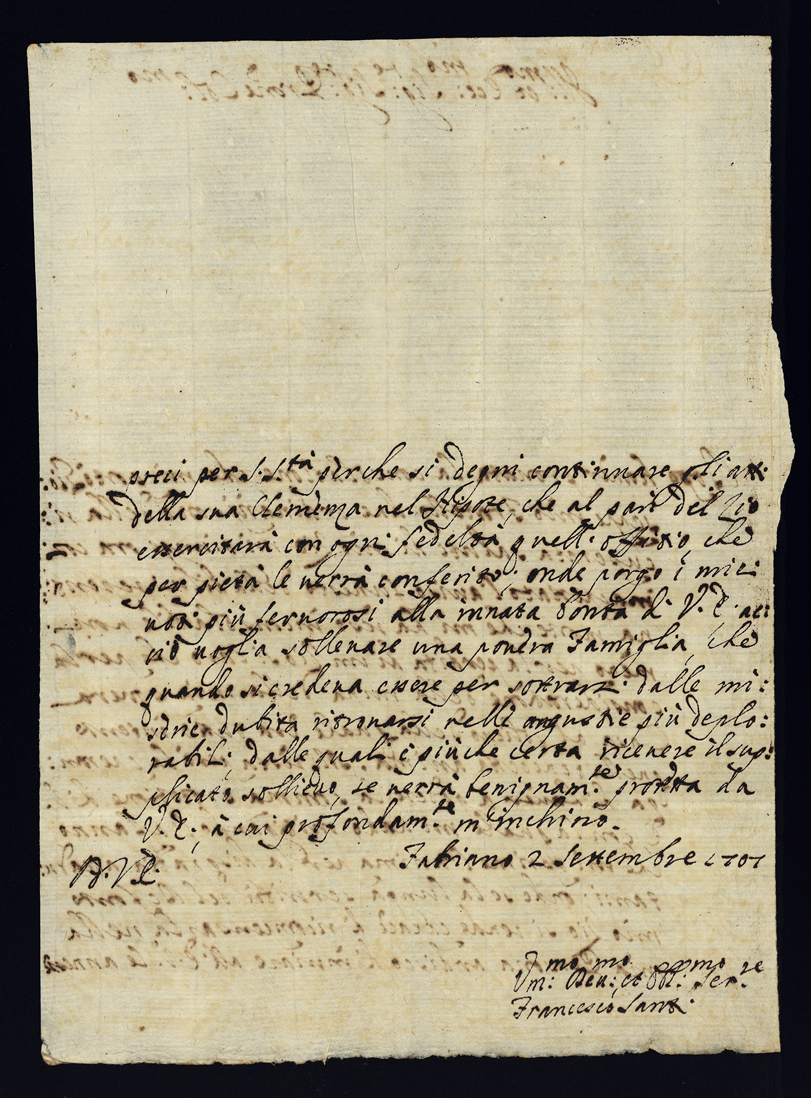 preci per S. S.tà perche si degni continuare gli atti
della sua Clemenza nel Nipote, che al pari del Zio
esserciterà con ogni fedeltà quell' offitio, che
per pietà le verrà conferito; onde porgo i miei
voti più fervorosi alla innata bontà di V. E. ac:
ciò voglia sollevare una povera Famiglia, che
quando si credeva essere per sottrarsi dalle mi:
serie dubita ritrovarsi nelle angustie più deplo:
rabili; dalle quali è più che certa ricevere il sup:
plicato sollievo, se verrà benignam.te protetta da
V. E., à cui profondam.te m'inchino.
Fabriano 2 Settembre 1707
D. V. E.
Um:mo Dev:mo et Obl:mo Ser.re
Francesco Santi